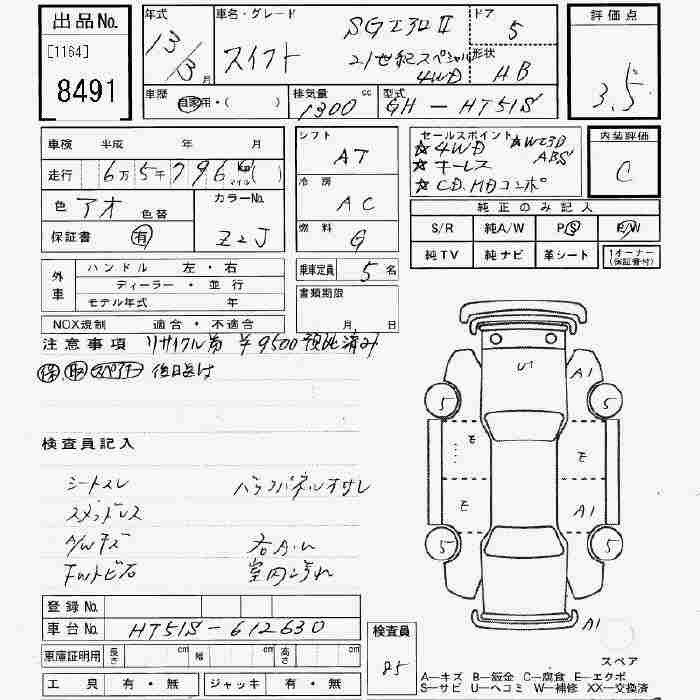 出品No.
[1164]
8491
年式 車名・グレード ドア 評価点
13/3月 スイフト SG 21世紀スペシャル 4WD 5 形状 HB 3.5
車歴 自家用・( ) 排気量 1300 cc 型式 GH-HT51S
車検 平成 年 月
走行 6万5千796
色 アオ 色替
カラーNo. Z2J
保証書 有
シフト AT
冷房 AC
燃料 G
乗車定員 5名
書類期限
月 日
セールスポイント
☆4WD ☆ ABS
☆キーレス
☆CD.MDコンポ
内装評価
C
純正のみ記入
S/R 純A/W PS P/W
純TV 純ナビ 革シート 1オーナー(保証書付)
外車
ハンドル 左・右
ディーラー・並行
モデル年式 年
NOX規制 適合・不適合
注意事項 リサイクル券 ¥9500預託済み
保 取 スペアキー 後日送付
U1
A1
5
5
E
E
E
A1
5
5
A1
検査員記入
シートスレ バックパネルオサレ
スタッドレス
A/Wキズ
フロントトビ石 室内汚れ
登録No.
車台No. HT51S-612630
車庫証明用 長さ cm 幅 cm 高さ cm
工具 有・無 ジャッキ 有・無
検査員
85
スペア
A―キズ B―鈑金 C―腐食 E―エクボ
S―サビ U―ヘコミ W―補修 XX―交換済